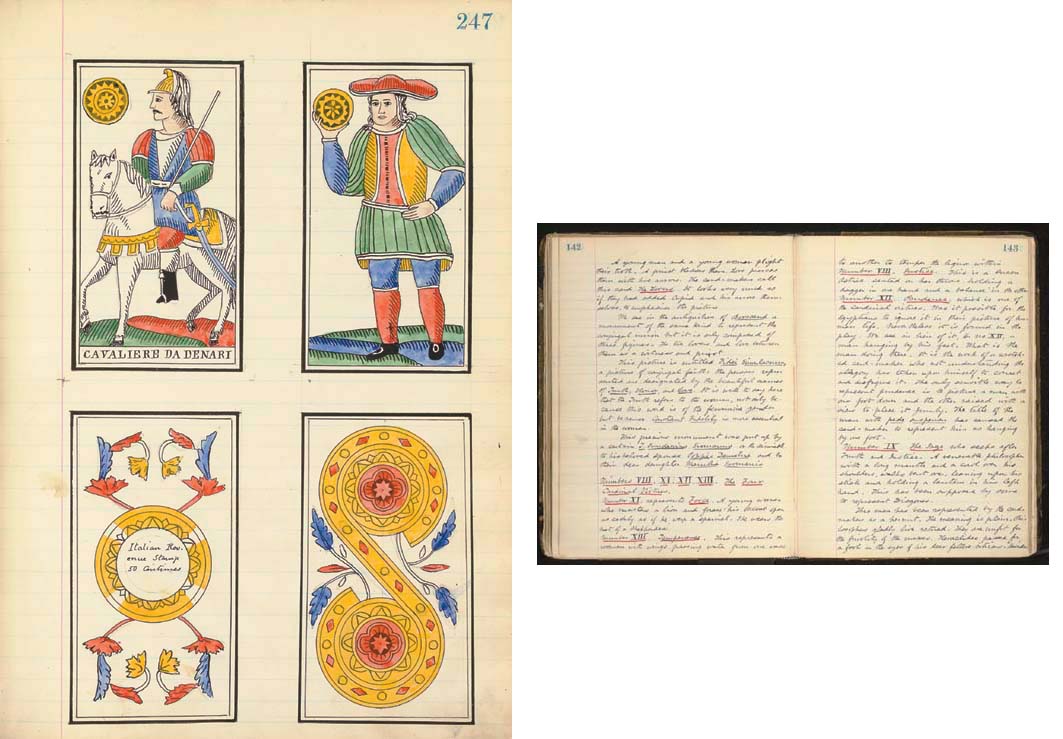 247
CAVALIERE DA DENARI
Italian Rev-
enue Stamp
50 Centimes
142
A young man and a young woman plight
their troth. A priest blesses them. Love pierces
them with his arrow. The card-makers call
this card The Lovers. It looks very much as
if they had added Cupid and his arrow them
selves, to emphasize the picture.
We see in the antiquities of
monument of the same kind to represent the
conjugal union but it is only composed of
three figures. The lovers and love between
them as a witness and priest.
This picture is entitled Fidei Simulacrum,
a picture of conjugal faith: the persons repre-
sented are designated by the beautiful names
of Truth, Honor and Love. It is well to say here
that the Truth refers to the woman, not only be
cause this word is of the feminine gender
but because constant fidelity is more essential
in the woman.
This precious monument was put up by
a certain
to his beloved spouse and to
their dear daughter
Numbers VIII, XI, XII, XIII. The Four
Cardinal Virtues.
Number XI represents Force. A young woman
who masters a lion and forces his
as easily as if he was a spaniel. She wears the
hat of a
Number XIII. Temperance. This represents a
woman with wings passing water from one vase
143
to another to temper the liquor within
Number VIII. Justice. This is a queen
seated on her throne holding a
dagger in one hand and a balance in the other
Number XII. Prudence, which is one of
the cardinal virtues. Was it possible for the
Egyptians to ignore it in their picture of hu-
man life. Nevertheless it is found in the
play. We see in lieu of it, in no XII,
man hanging by his feet. What is the
man doing there. It is the work of a wretch-
ed card-maker who not understanding the
allegory has taken upon himself to correct
and disfigure it. The only sensible way to
represent prudence is to picture a man with
one foot down and the other raised with a
view to place it firmly. The title of the
man with pede suspenso has caused the
card-maker to represent him as hanging
by one foot.
Number IX The Sage who seeks after
Truth and Justice. A venerable philosopher
with a long mantle and a cowl over his
shoulders, walks bent over, leaning upon his
stick and holding a lantern in his left
hand. This has been supposed by some
to represent Diogenes.
This man has been represented by the card-
makers as a hermit. The meaning is plain, phi-
losophers gladly live retired.